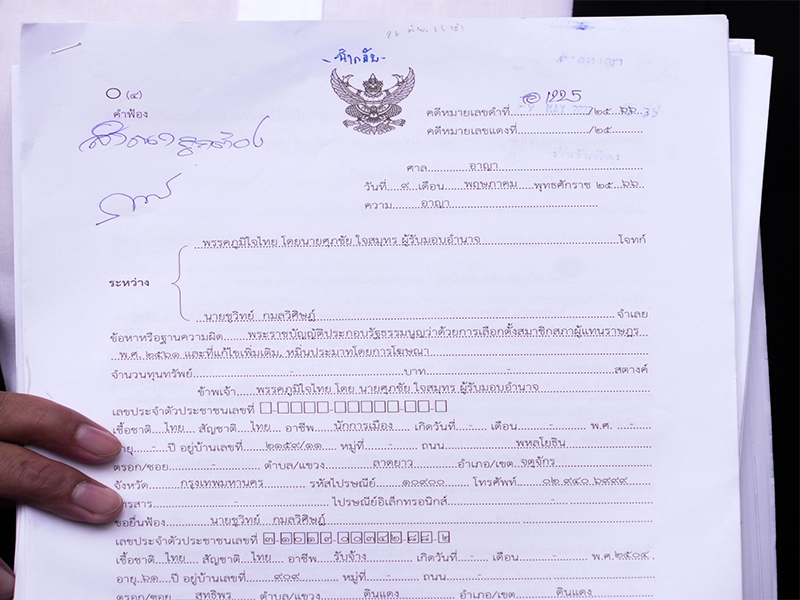 (๔)
คำฟ้อง
สำเนาคู่ฉบับ
คดีหมายเลขดำที่ อ ๑๒๒๕ /๒๕ ๖๖
คดีหมายเลขแดงที่ /๒๕
ศาล อาญา
วันที่ ๙ เดือน พฤษภาคม พุทธศักราช ๒๕ ๖๖
ความ อาญา
พรรคภูมิใจไทย โดยนายศุภชัย ใจสมุทร ผู้รับมอบอำนาจ โจทก์
ระหว่าง
นายชูวิทย์ กมลวิศิษฎ์ จำเลย
ข้อหาหรือฐานความผิด พระราชบัญญัติประกอบรัฐธรรมนูญว่าด้วยการเลือกตั้งสมาชิกสภาผู้แทนราษฎร
พ.ศ. ๒๕๖๑ และที่แก้ไขเพิ่มเติม, หมิ่นประมาทโดยการโฆษณา
จำนวนทุนทรัพย์ - บาท - สตางค์
ข้าพเจ้า พรรคภูมิใจไทย โดย นายศุภชัย ใจสมุทร ผู้รับมอบอำนาจ
เลขประจำตัวประชาชนเลขที่
เชื้อชาติ ไทย สัญชาติ ไทย อาชีพ นักการเมือง เกิดวันที่ - เดือน - พ.ศ. -
อายุ ปี อยู่บ้านเลขที่ ๒๑๕๙/๑๑ หมู่ที่ - ถนน พหลโยธิน
ตรอก/ซอย - ตำบล/แขวง ลาดยาว อำเภอ/เขต จตุจักร
จังหวัด กรุงเทพมหานคร รหัสไปรษณีย์ ๑๐๙๐๐ โทรศัพท์ ๐๒ ๙๔๐ ๖๙๙๙
โทรสาร - ไปรษณีย์อิเล็กทรอนิกส์ -
ขอยื่นฟ้อง นายชูวิทย์ กมลวิศิษฎ์
เลขประจำตัวประชาชนเลขที่
เชื้อชาติ ไทย สัญชาติ ไทย อาชีพ รับจ้าง เกิดวันที่ - เดือน - พ.ศ. ๒๕๐๔
อายุ ๖๑ ปี อยู่บ้านเลขที่ ๙๐๙ หมู่ที่ - ถนน -
ตรอก/ซอย สุทธิพร ตำบล/แขวง ดินแดง อำเภอ/เขต ดินแดง